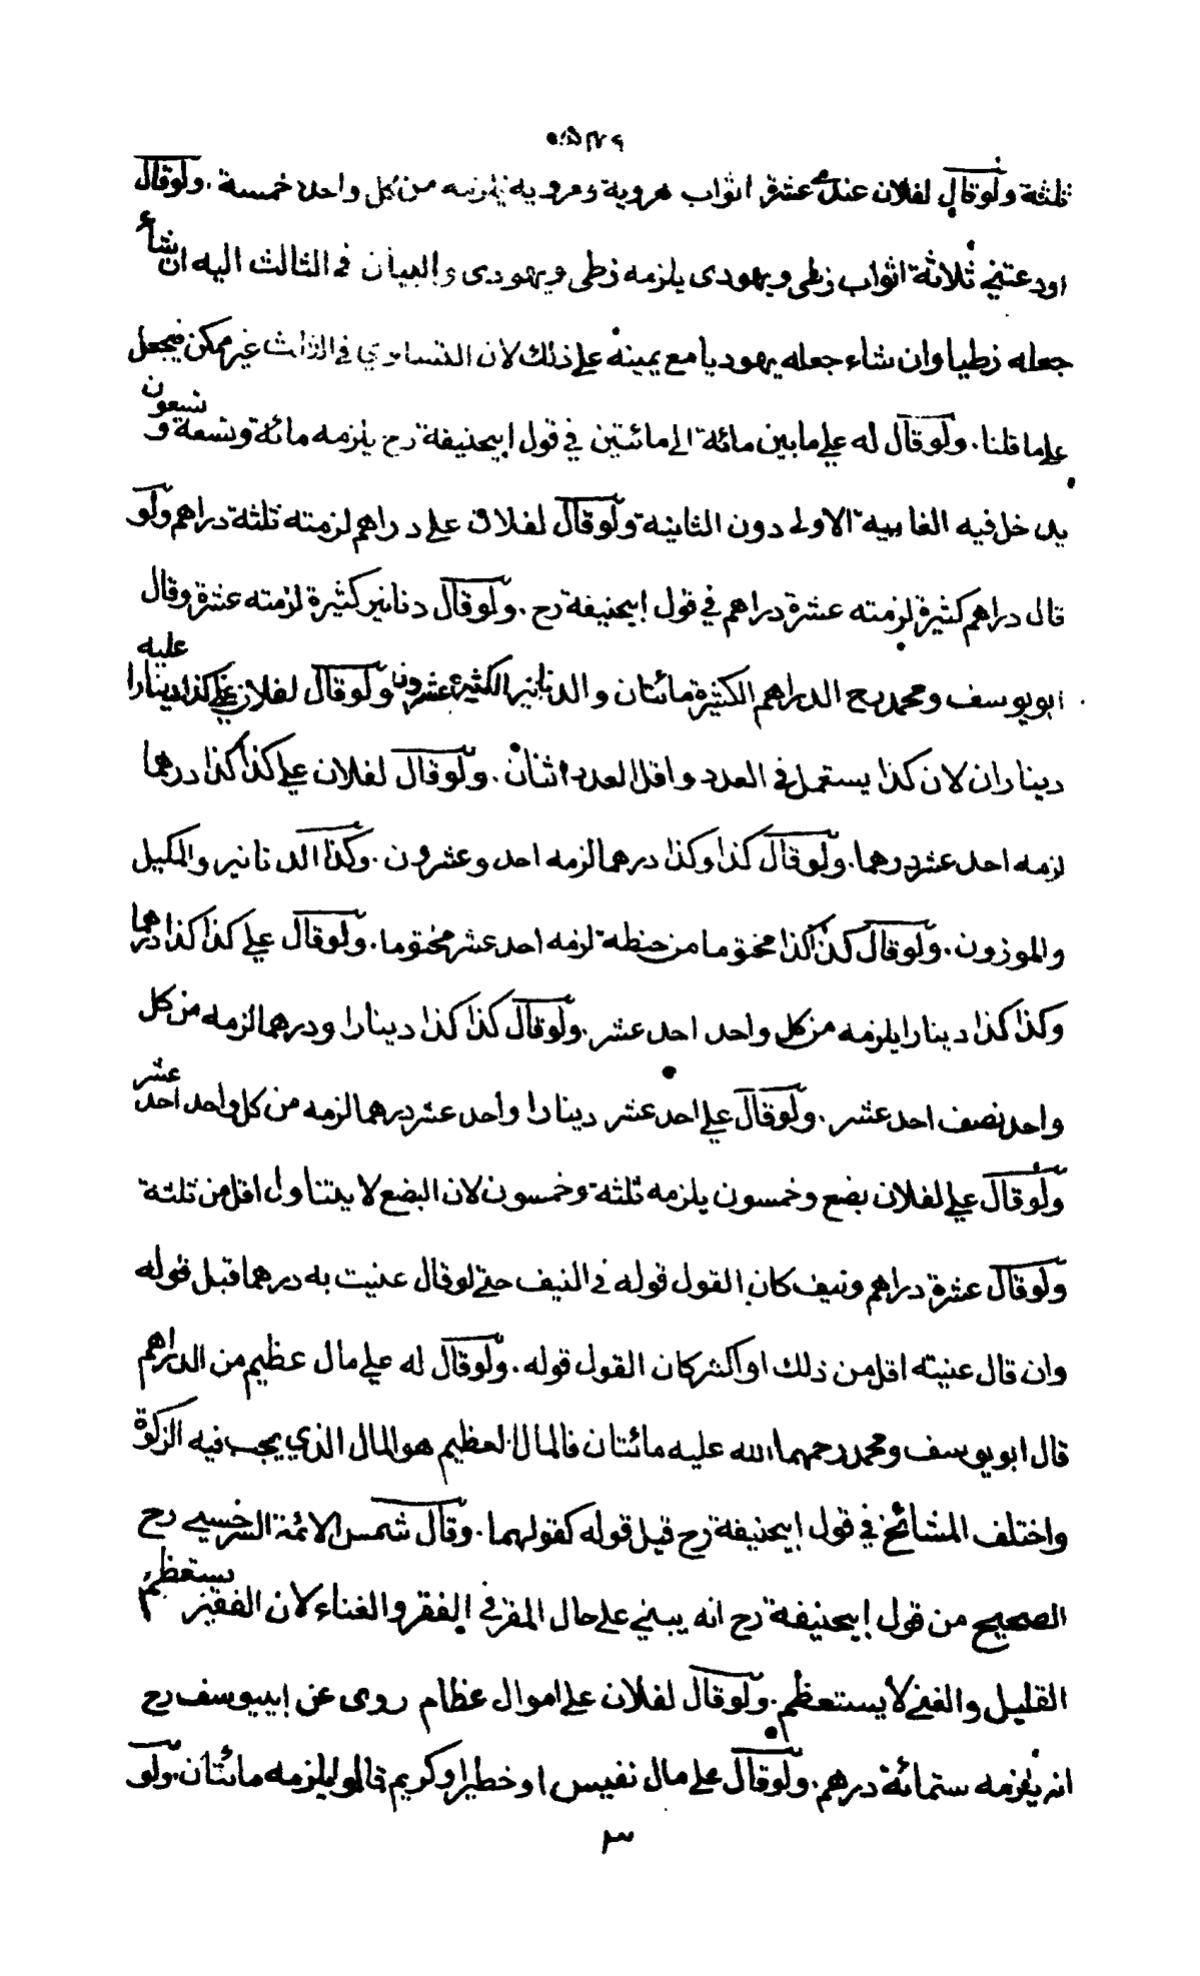 ثلثة ولو قال لفلان عندي عشرة اثواب هروية ومروية يلزمه من كل واحد خمسة . ولو قال
اودعتني ثلاثة اثواب زطى ويهودى يلزمه زطى ويهودى والبيان فى الثالث اليه ان شاء
جعله زطيا وان شاء جعله يهوديا مع يمينه على ذلك لان التساوي في الثالث غير ممكن فيجعل
على ما قلنا . ولو قال له علي ما بين مائة الى مائتين في قول ابيحنيفة رح يلزمه مائة وتسعة و تسعون
يدخل فيه الغاية الاولى دون الثانية ولو قال لفلان على دراهم لزمته ثلثة دراهم ولو
قال دراهم كثيرة لزمته عشرة دراهم في قول ابيحنيفة رح . ولو قال دنانير كثيرة لزمته عشرة وقال
ابو يوسف ومحمد رح الدراهم الكثيرة مائتان والدنانير الكثيرة عشرون ولو قال لفلان علي كذا دينارا عليه
ديناران لان كذا يستعمل فى العدد واقل العدد اثنان . ولو قال لفلان علي كذا كذا درهما
لزمه احد عشر درهما . ولو قال كذا وكذا درهما لزمه احد وعشرون . وكذا الدنانير والمكيل
والموزون . ولو قال كذا كذا مختوما من حنطة لزمه احد عشر مختوما . ولو قال علي كذا كذا درهما
وكذا كذا دينارا يلزمه من كل واحد احد عشر . ولو قال كذا كذا دينارا ودرهما لزمه من كل
واحد نصف احد عشر . ولو قال علي احد عشر دينارا واحد عشر درهما لزمه من كل واحد احد عشر
ولو قال علي لفلان بضع وخمسون يلزمه ثلثة وخمسون لان البضع لا يتناول اقل من ثلثة
ولو قال عشرة دراهم ونيف كان القول قوله فى النيف حتى لو قال عنيت به درهما قبل قوله
وان قال عنيته اقل من ذلك او اكثر كان القول قوله . ولو قال له علي مال عظيم من الدراهم
قال ابو يوسف ومحمد رحمهما الله عليه مائتان فالمال العظيم هو المال الذي يجب فيه الزكوة
واختلف المشائخ في قول ابيحنيفة رح قيل قوله كقولهما . وقال شمس الائمة السرخسي رح
الصحيح من قول ابيحنيفة رح انه يبني على حال المقر في الفقر والغناء لان الفقير يستعظم
القليل والغني لا يستعظم . ولو قال لفلان على اموال عظام روى عن ابييوسف رح
انه يلزمه ستمائة درهم . ولو قال على مال نفيس او خطير او كريم قالوا يلزمه مائتان . ولو
٣